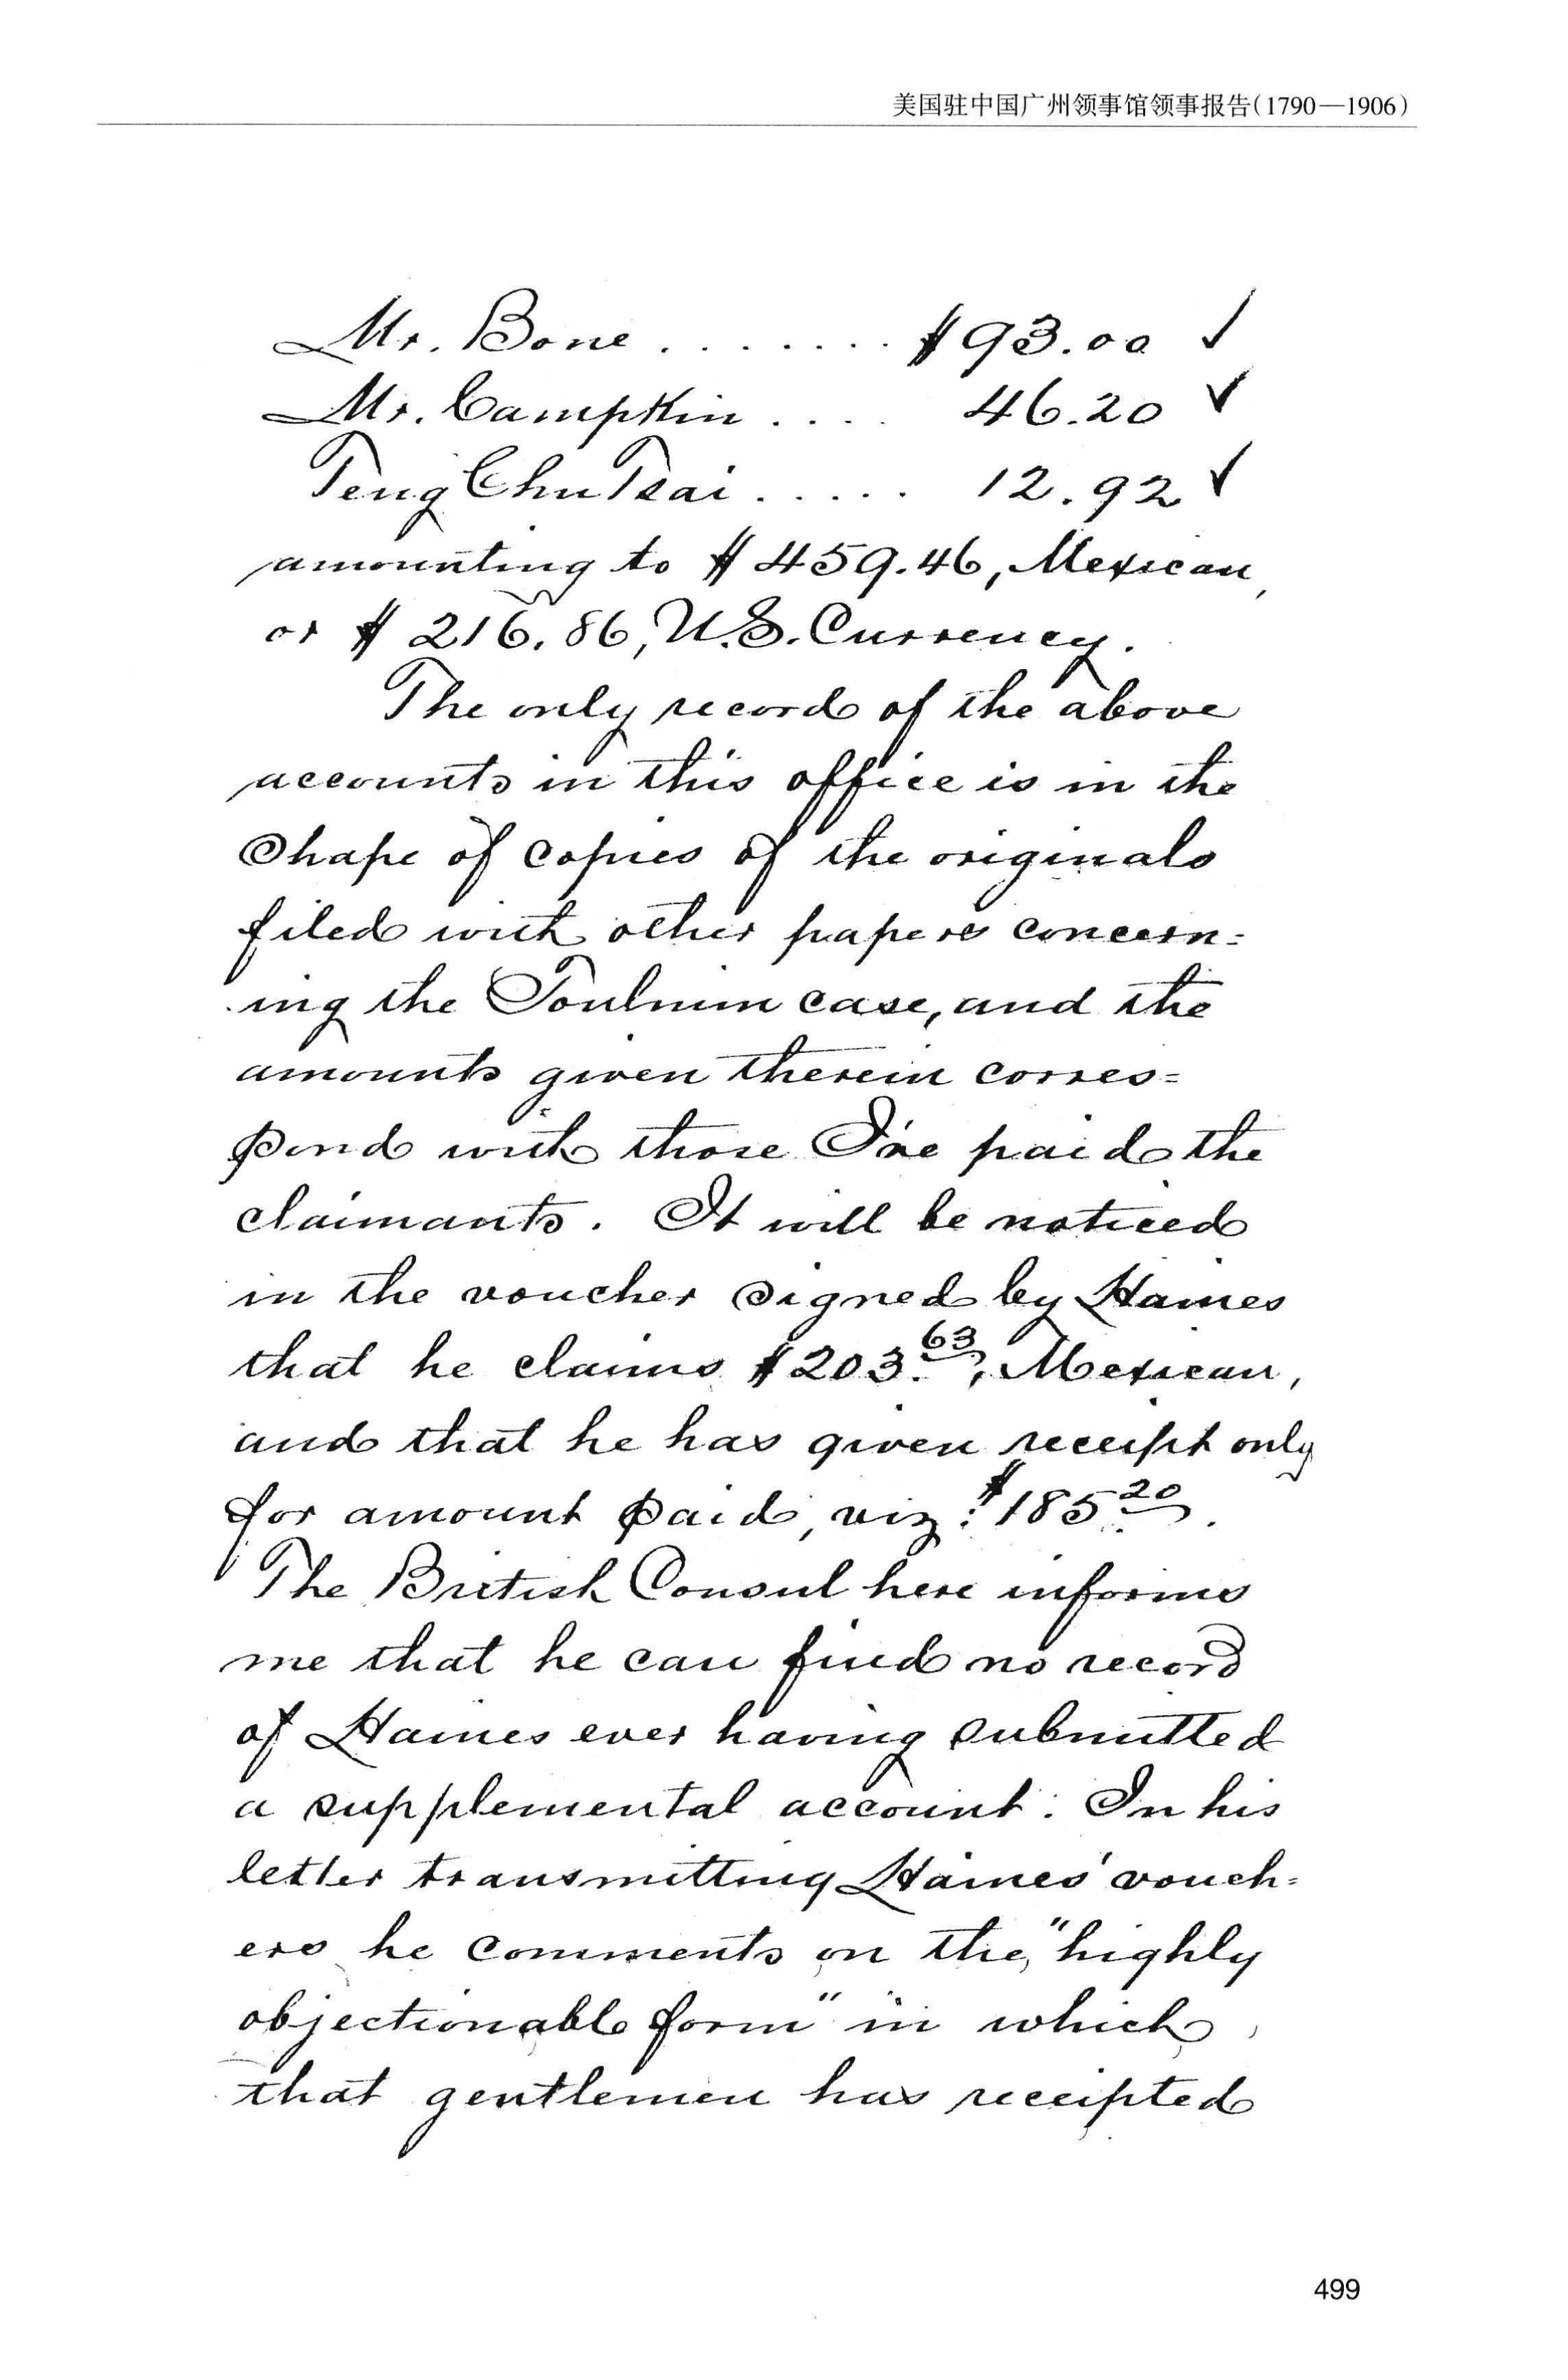 美国驻中国广州领事馆领事报告(1790—1906)
Mr. Bone ....... $93.00 ✓
Mr. Campkin .... 46.20 ✓
Teng Chu Tsai ..... 12.92 ✓
amounting to $459.46, Mexican,
or $216.86, U.S. Currency.
The only record of the above
accounts in this office is in the
shape of copies of the originals
filed with other papers concern=
ing the Toulmin case, and the
amounts given therein corres=
pond with those I've paid the
claimants. It will be noticed
in the voucher signed by Haines
that he claims $203.63, Mexican,
and that he has given receipt only
for amount paid, viz: $185.20.
The British Consul here informs
me that he can find no record
of Haines ever having submitted
a supplemental account. In his
letter transmitting Haines' vouch=
ers he comments on the, "highly
objectionable form" in which,
that gentlemen has receipted
499